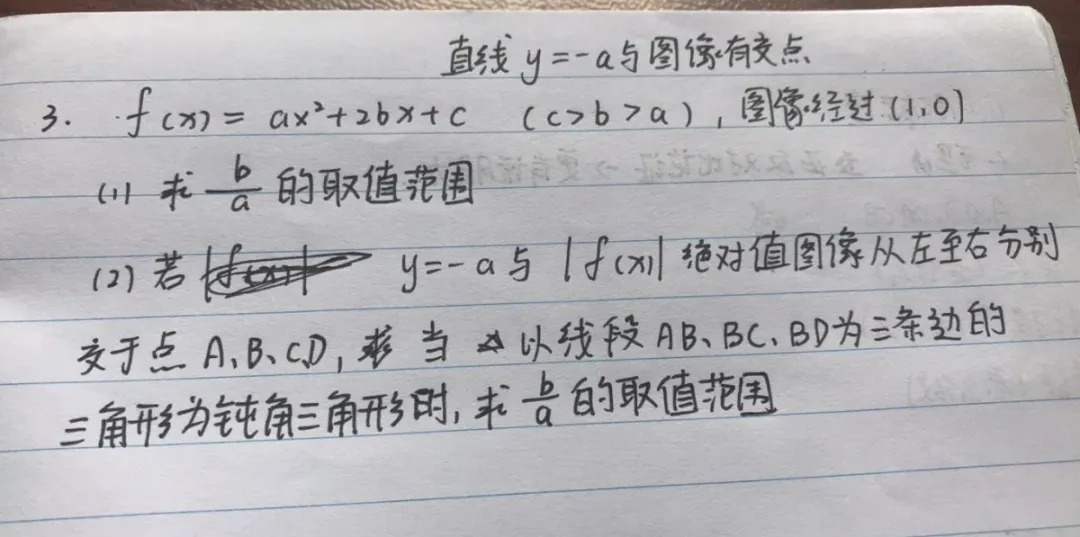 直线 y=-a与图像有交点
3. f(x)= ax²+2bx+c (c>b>a), 图像经过(1,0)
(1) 求 b/a 的取值范围
(2) 若 y=-a与 |f(x)| 绝对值图像从左至右分别
交于点 A、B、C、D, 求 当 以线段 AB、BC、BD为三条边的
三角形为钝角三角形时, 求 b/a 的取值范围